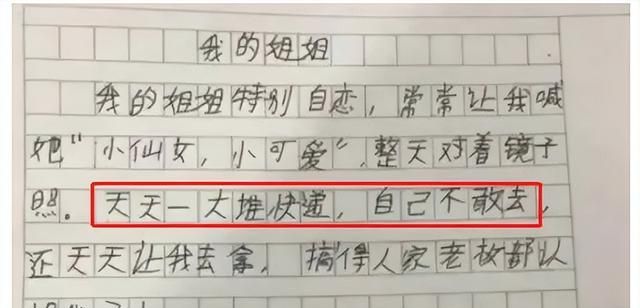 我的姐姐
我的姐姐特别自恋，常常让我喊
她“小仙女，小可爱”，整天对着镜子
照。天天一大堆快递，自己不敢去，
还天天让我去拿，搞得人家老板都以